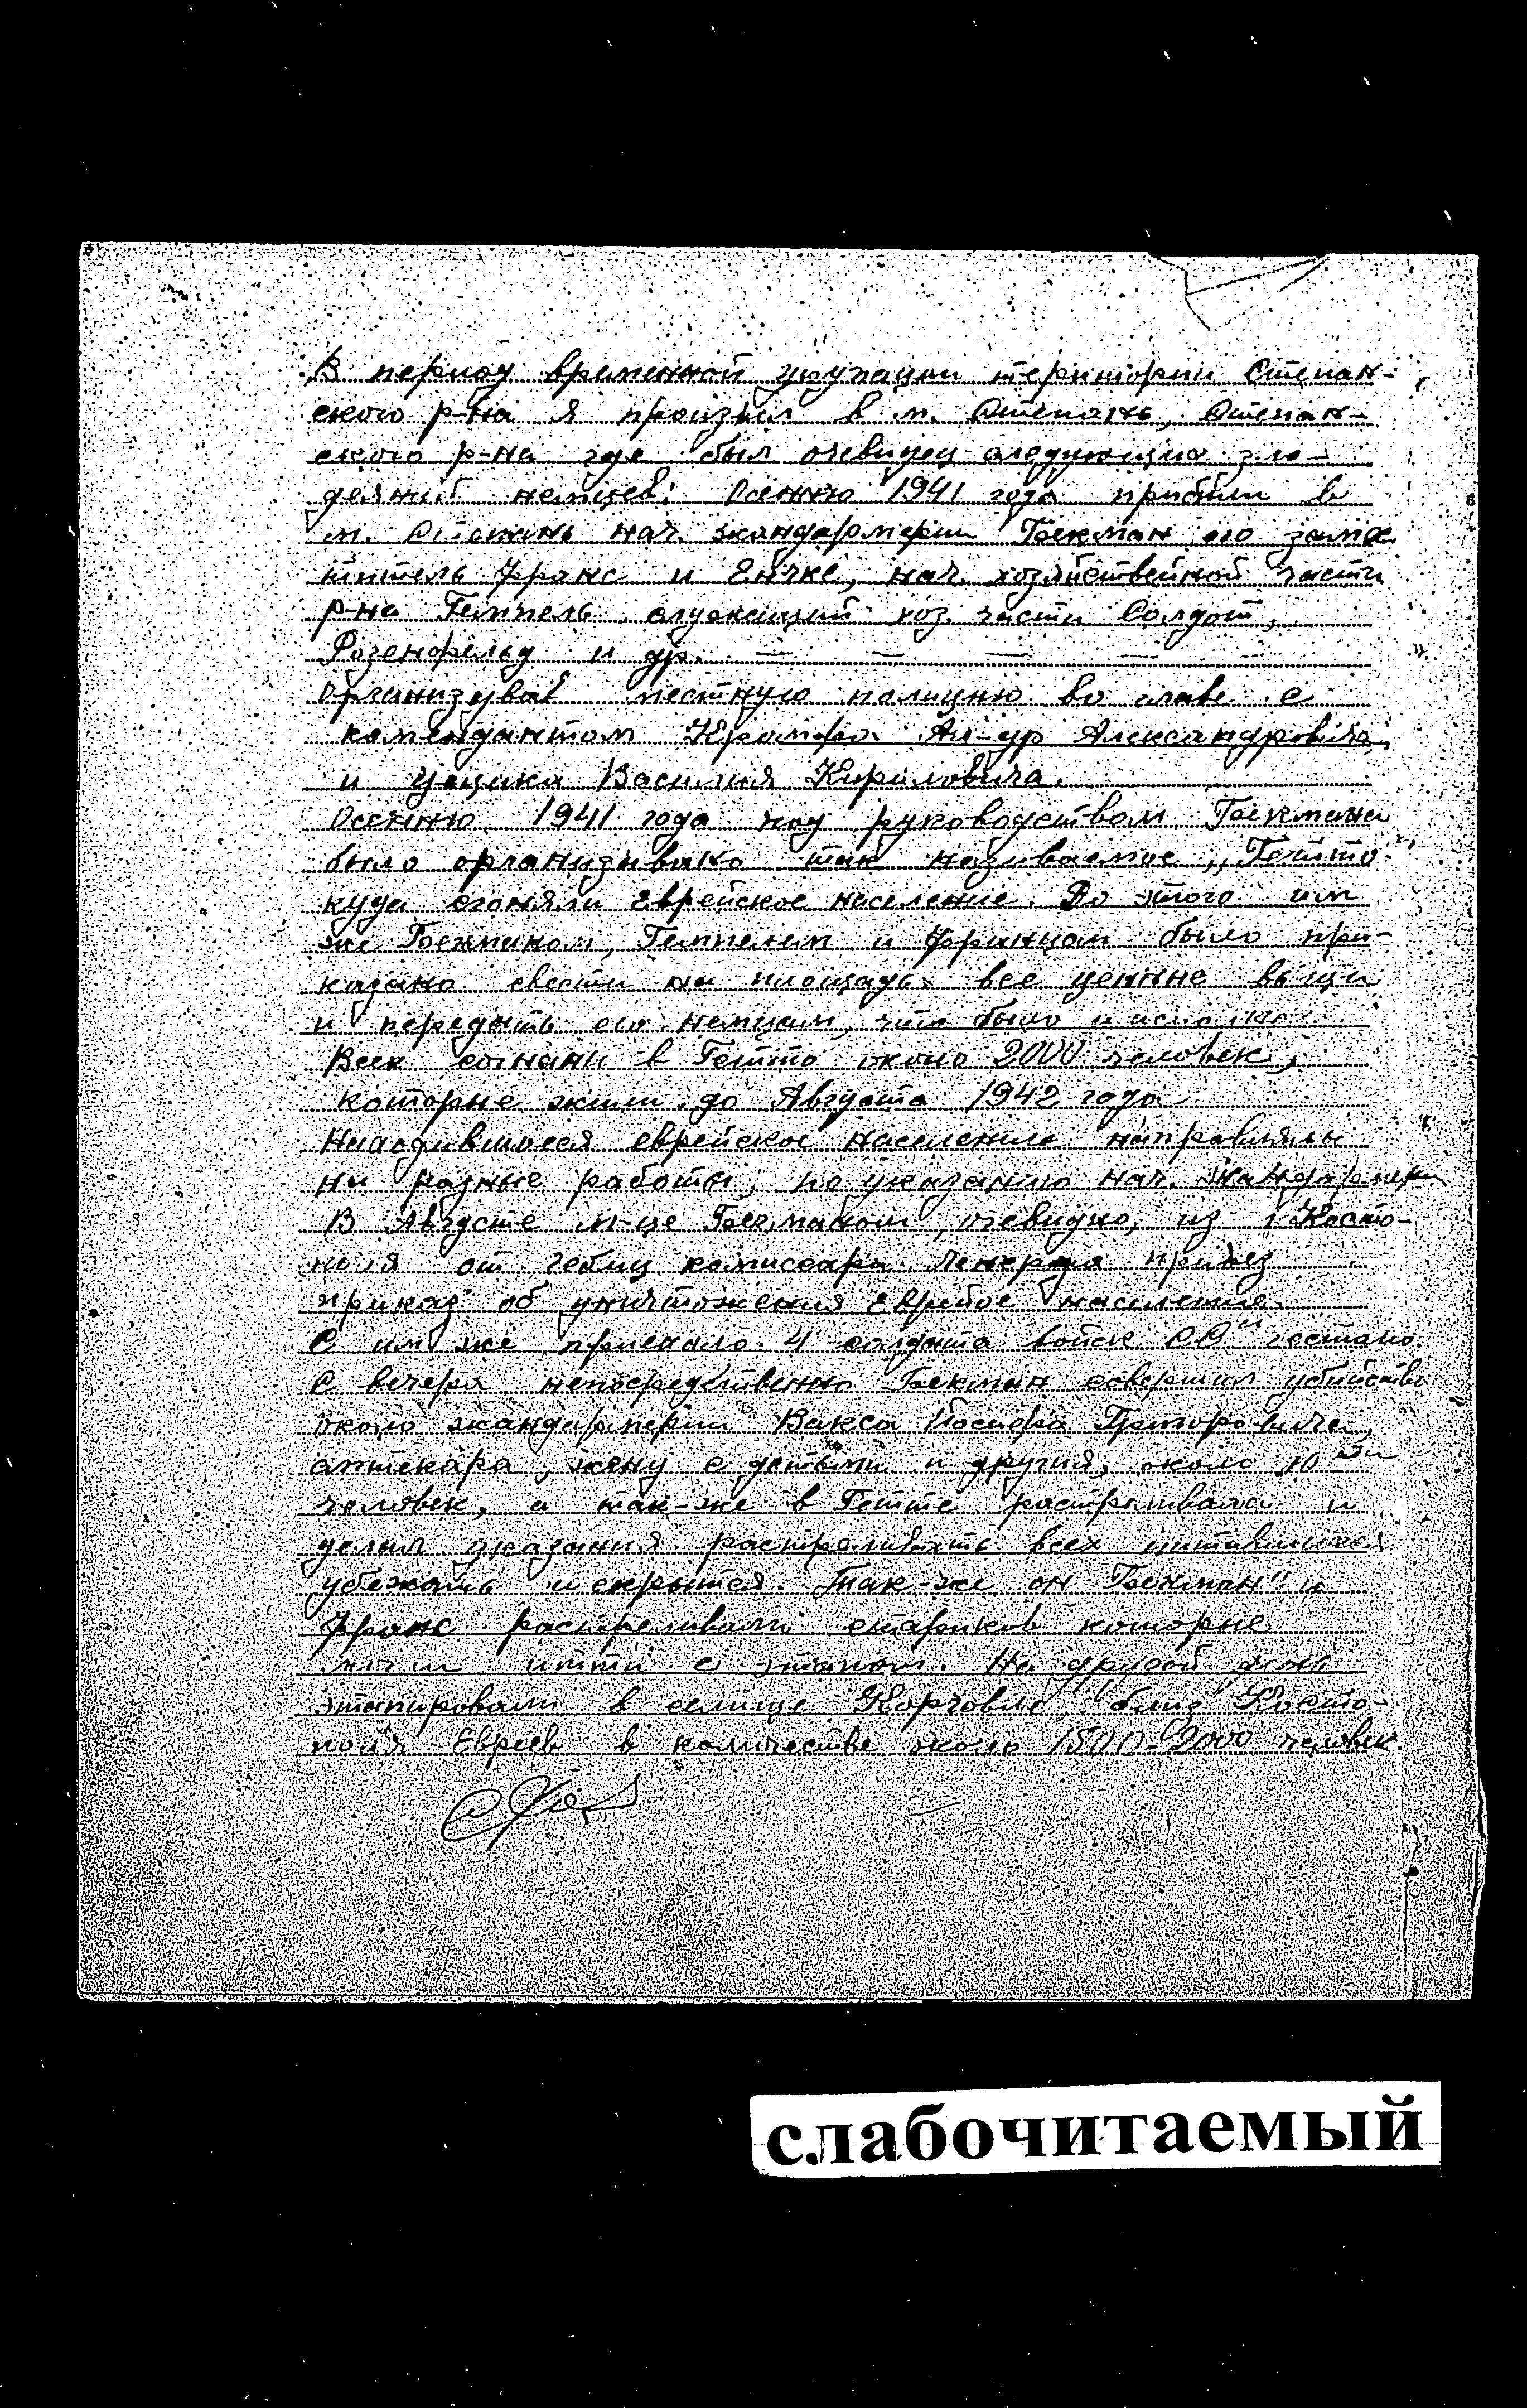 В период временной укупации територии Степан-
ского р-на я прозжил в м. Степань, Степан-
ского р-на где был очевидец следующих зло-
деяний немцев: Осенню 1941 года прибили в
м. Степань нач. жандармерии Бекман его замес
титель Франс и Енчке, нач. хозяйственной части
р-на Гемпель, служащий хоз. части Солдат,
Розенфельд и др.
Организував местную полицию во главе с
комендантом Ал-др Александровича,
и Василия Кириловича.
Осенню 1941 года под руководством Бекмана
было организивано так називаемое „Гетто"
куда сгоняли Еврейское население. До этого им
же Бекманом, Гемпелем и Францом было при-
казано свести на площадь все ценные вещи
и передать его немцам, что было и
Всех согнани в Гетто около 2000 человек,
которые жили до Августа 1942 года
Находившиеся еврейское население направляли
на разные работы, по указанию нач. жандармери
В Августе м-це Бекманом, очевидно, из г. Косто-
поля от гебиц комиссара привез
приказ об уничтожения населения.
С им же приехало 4 солдата войск „СС" гестапо.
С вечера непосредственно Бекман совершил убийство
около жандармерии Вакса Иосифа Григоровича,
аптекара, жену с детьми и другия, около 10 ти
человек, а так-же в Гетте растреливали и
делал указания растреливать всех питавшихся
убежать и скрытся. Так-же он „Бекман" и
Франс растреливали стариков которые
итти с этапом. На другой день
этапировали в селище близ Косто-
поля Евреев в количестве около 1500-2000 человек
слабочитаемый